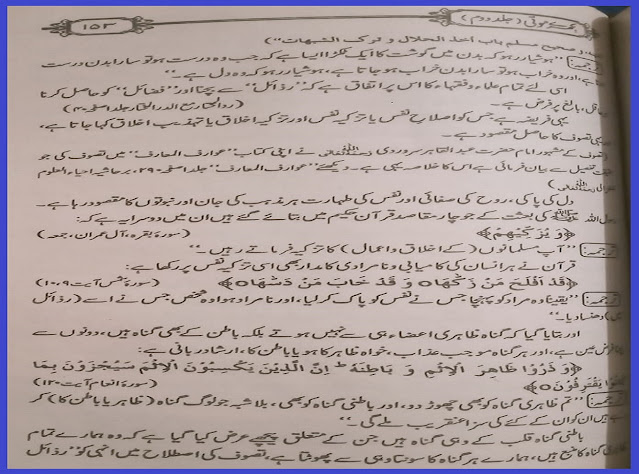 بکھرے موتی (جلد دوم) ۱۵۳
(صحیح مسلم باب اخذ الحلال و ترک الشبهات)
ترجمہ: "ہوشیار رہو کہ بدن میں گوشت کا ایک ٹکڑا ایسا ہے کہ جب وہ درست ہو تو سارا بدن درست
ہوتا ہے، اور وہ خراب ہو تو سارا بدن خراب ہو جاتا ہے، ہوشیار رہو کہ وہ دل ہے۔"
اسی لئے تمام علماء و فقہاء کا اس پر اتفاق ہے کہ "رذائل" سے بچنا اور "فضائل" کو حاصل کرنا
عاقل، بالغ پر فرض ہے۔ (رد المحتار مع الدر المختار جلد صفحہ ۴۰)
یہی فریضہ ہے جس کو اصلاح نفس یا تزکیہ نفس اور تزکیہ اخلاق یا تہذیب اخلاق کہا جاتا ہے،
اور یہی تصوف کا حاصل مقصود ہے۔
تصوف کے مشہور امام حضرت عبد القاہر سہروردی نے اپنی کتاب "عوارف المعارف" میں تصوف کی جو
تفصیل سے بیان فرمائی ہے اس کا خلاصہ یہی ہے۔ دیکھئے "عوارف المعارف" جلد صفحہ ۲۹۰، بر حاشیہ احیاء العلوم
دل کی پاکی، روح کی صفائی اور نفس کی طہارت ہر مذہب کی جان اور نبوتوں کا مقصود رہا ہے۔
رسول اللہ ﷺ کی بعثت کے جو چار مقاصد قرآن حکیم میں بتائے گئے ہیں ان میں دوسرا یہ ہے کہ:
﴿وَ یُزَکِّیْهِمْ﴾ (سورۂ بقرہ، آل عمران، جمعہ)
ترجمہ: "آپ مسلمانوں (کے اخلاق و اعمال) کا تزکیہ فرماتے رہیں۔"
قرآن نے ہر انسان کی کامیابی و نامرادی کا مدار بھی اسی تزکیہ نفس پر رکھا ہے:
﴿قَدْ اَفْلَحَ مَنْ زَکّٰهَا۝ وَ قَدْ خَابَ مَنْ دَسّٰهَا۝﴾ (سورۂ شمس آیت ۹، ۱۰)
ترجمہ: "یقیناً وہ مراد کو پہنچا جس نے نفس کو پاک کر لیا، اور نامراد ہوا وہ شخص جس نے اسے (رذائل
میں) دھنسا دیا۔"
اور بتایا گیا کہ گناہ ظاہری اعضاء ہی سے نہیں ہوتے بلکہ باطن کے بھی گناہ ہیں، دونوں سے
فرض عین ہے، اور ہر گناہ موجب عذاب، خواہ ظاہر کا ہو یا باطن کا، ارشاد ربانی ہے:
﴿وَ ذَرُوْا ظَاهِرَ الْاِثْمِ وَ بَاطِنَهٗ ؕ اِنَّ الَّذِیْنَ یَکْسِبُوْنَ الْاِثْمَ سَیُجْزَوْنَ بِمَا
کَانُوْا یَقْتَرِفُوْنَ۝﴾ (سورۂ انعام آیت ۱۲۰)
ترجمہ: "تم ظاہری گناہ کو بھی چھوڑ دو، اور باطنی گناہ کو بھی، بلا شبہ جو لوگ گناہ (ظاہر یا باطن کا) کر
رہے ہیں ان کو ان کے کئے کی سزا عنقریب ملے گی۔"
باطنی گناہ قلب کے وہی گناہ ہیں جن کے متعلق پیچھے عرض کیا گیا ہے کہ وہ ہمارے تمام
گناہ کا منبع ہیں، ہمارے ہر گناہ کا سوتا وہی سے پھوٹتا ہے، تصوف کی اصطلاح میں انہی کو "رذائل